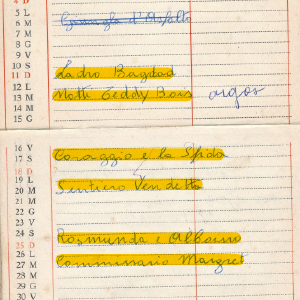 4 D
5 L Giungla d'Asfalto
6 M
7 M
8 G
9 V
10 S
11 D Ladro Bagdad
12 L
13 M Notti Teddy Bois argos
14 M
15 G
16 V
17 S Coraggio e la Sfida
18 D
19 L Sentiero Vendetta
20 M
21 M
22 G
23 V
24 S Rosmunda e Alboino
25 D
26 L Commissario Maigret
27 M
28 M
29 G
30 V